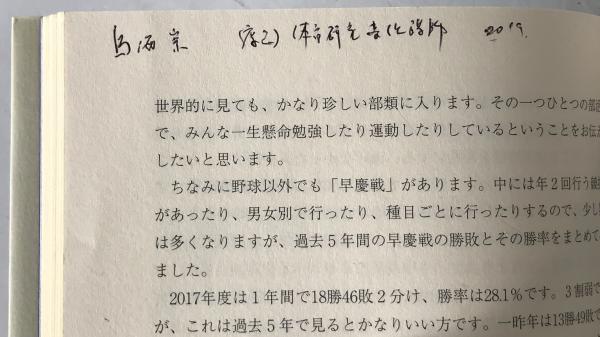 2019
世界的に見ても、かなり珍しい部類に入ります。その一つひとつの部活
で、みんな一生懸命勉強したり運動したりしているということをお伝え
したいと思います。
ちなみに野球以外でも「早慶戦」があります。中には年2回行う競技
があったり、男女別で行ったり、種目ごとに行ったりするので、少し
は多くなりますが、過去5年間の早慶戦の勝敗とその勝率をまとめて
ました。
2017年度は1年間で18勝46敗2分け、勝率は28.1%です。3割弱で
が、これは過去5年で見るとかなりいい方です。一昨年は13勝49敗で